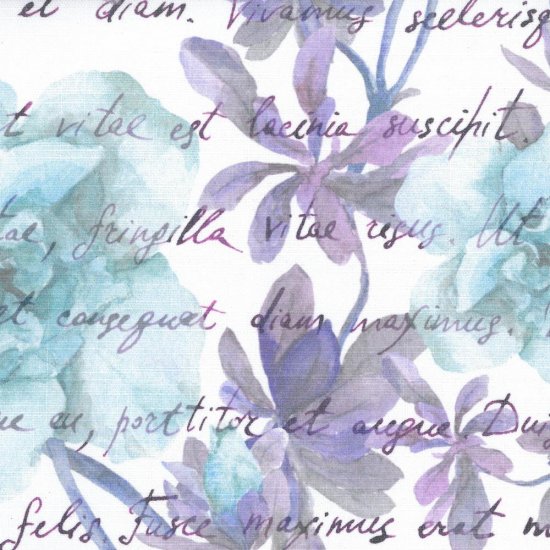 et diam. Vivamus scelerisq
t vitae est lacinia suscipit.
tae, fringilla vitae risus. Ut
et consequat diam maximus.
ne eu, porttitor et augue. Dui
felis. Fusce maximus erat m